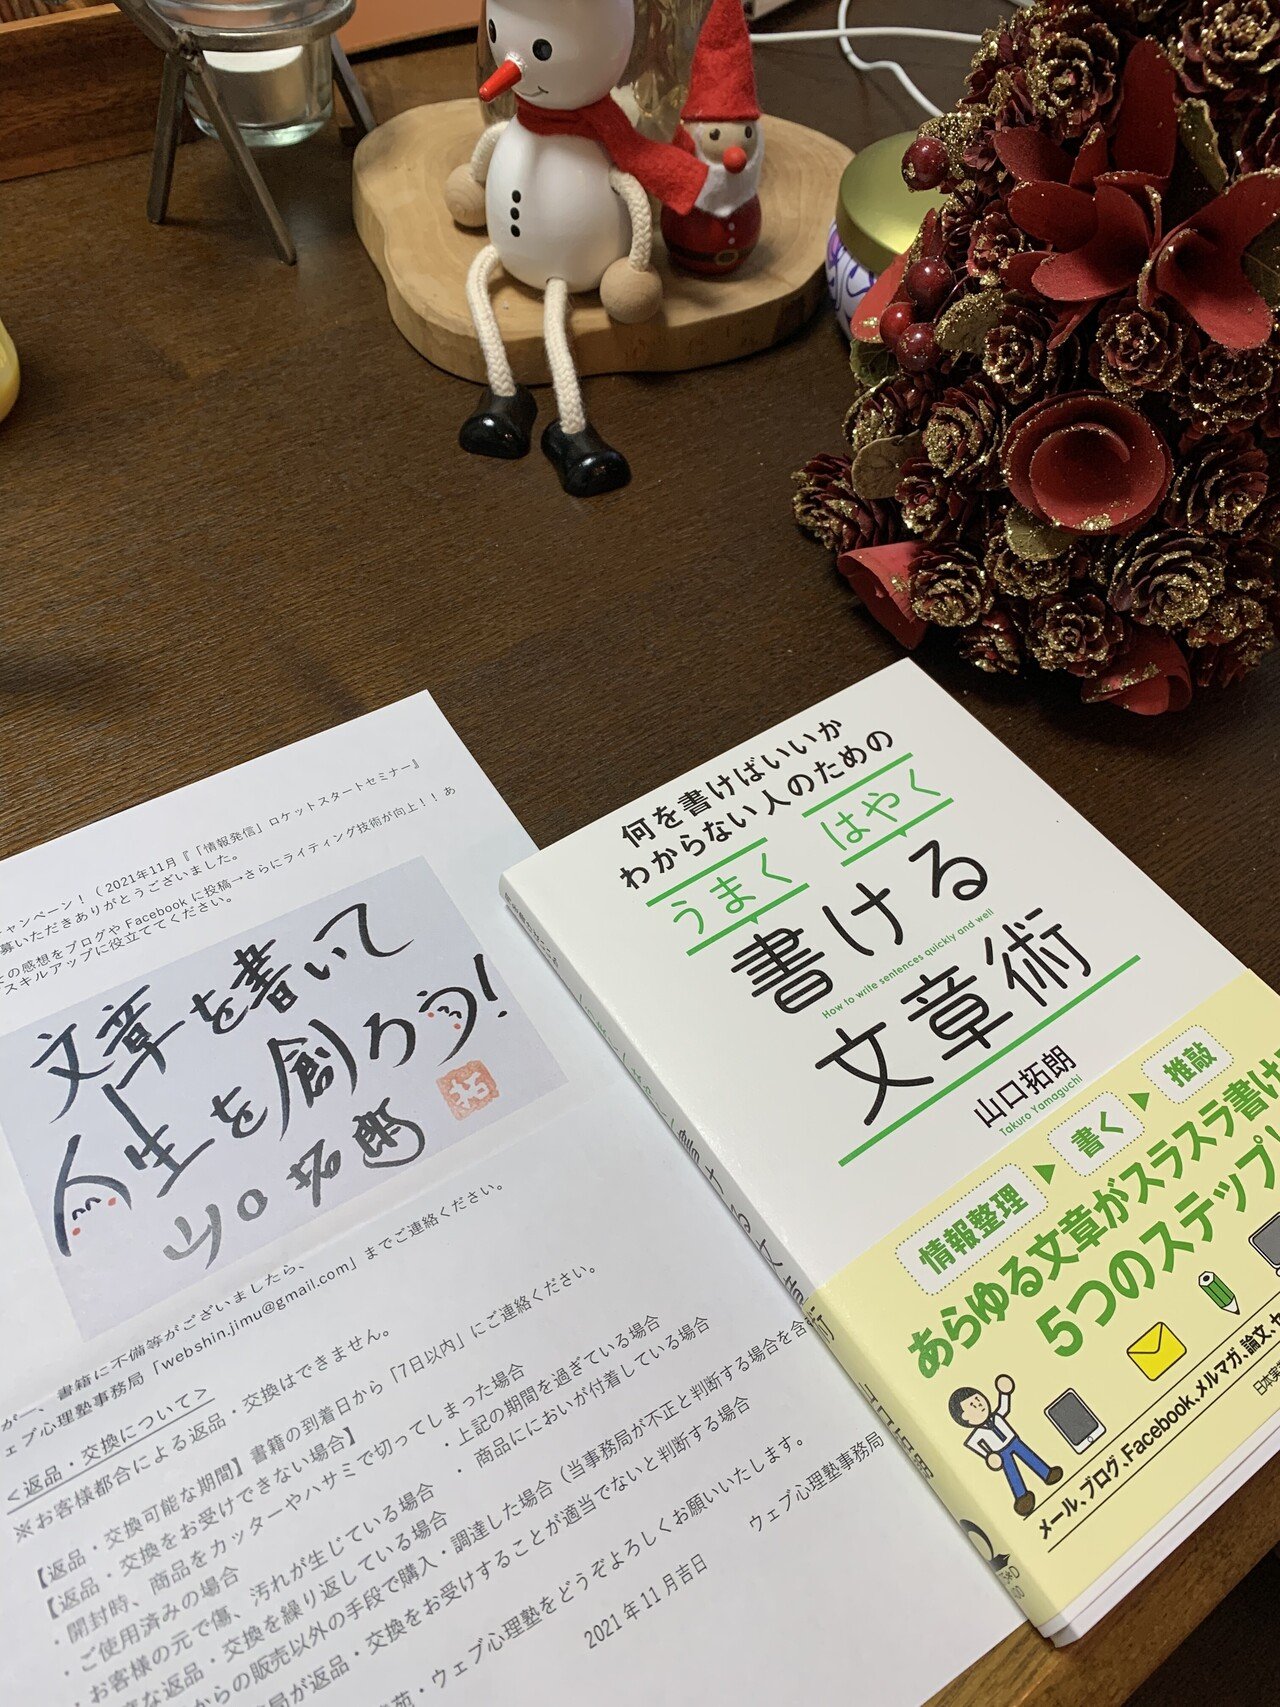 ャンペーン！（2021年11月『「情報発信」ロケットスタートセミナー』
募いただきありがとうございました。
の感想をブログやFacebookに投稿→さらにライティング技術が向上！！あ
スキルアップに役立ててください。
文章を書いて
人生を創ろう！
山口拓朗
拓
が一、書籍に不備等がございましたら、
ェブ心理塾事務局「webshin.jimu@gmail.com」までご連絡ください。
＜返品・交換について＞
※お客様都合による返品・交換はできません。
【返品・交換可能な期間】書籍の到着日から「7日以内」にご連絡ください。
【返品・交換をお受けできない場合】
・開封時、商品をカッターやハサミで切ってしまった場合
・ご使用済みの場合
・上記の期間を過ぎている場合
・お客様の元で傷、汚れが生じている場合
・商品ににおいが付着している場合
な返品・交換を繰り返している場合
からの販売以外の手段で購入・調達した場合（当事務局が不正と判断する場合を含
局が返品・交換をお受けすることが適当でないと判断する場合
・ウェブ心理塾をどうぞよろしくお願いいたします。
2021年11月吉日
ウェブ心理塾事務局
何を書けばいいか
わからない人のための
うまく
はやく
書ける
How to write sentences quickly and well
文章術
山口拓朗
Takuro Yamaguchi
情報整理▶書く▶推敲
あらゆる文章がスラスラ書け
5つのステップ
メール、ブログ、Facebook、メルマガ、論文、
日本実